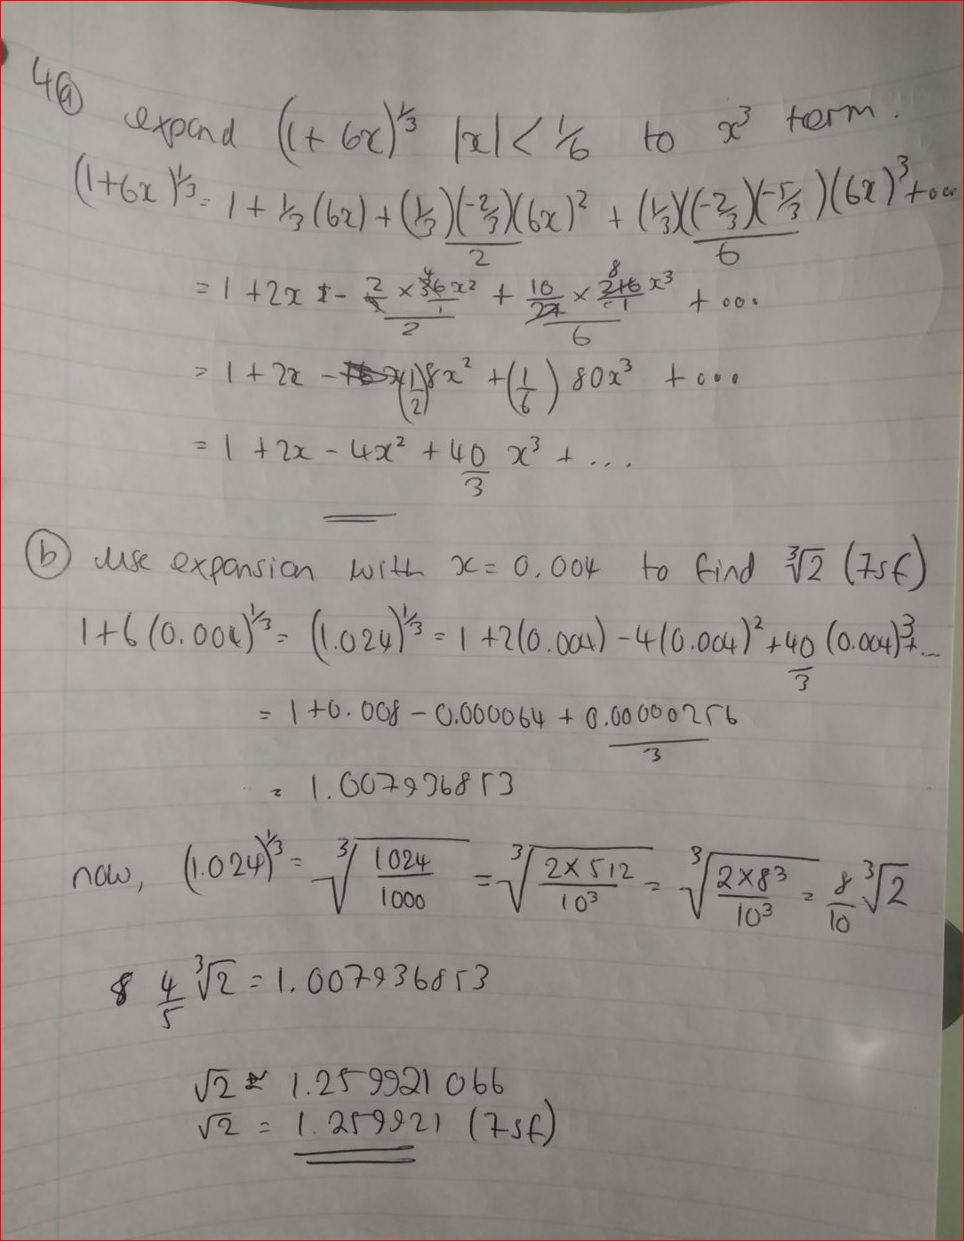 4(a) expand (1+6x)^1/3 |x| < 1/6 to x^3 term.
(1+6x)^1/3 = 1 + 1/3 (6x) + (1/3)(-2/3)/2 (6x)^2 + (1/3)(-2/3)(-5/3)/6 (6x)^3 + ...
= 1 + 2x - (2/9 × 36x^2/1)/2 + (10/27 × 216/1 x^3)/6 + ...
= 1 + 2x - (1/2) 8x^2 + (1/6) 80x^3 + ...
= 1 + 2x - 4x^2 + 40/3 x^3 + ...
(b) use expansion with x = 0.004 to find ∛2 (7sf)
1+6(0.004)^1/3 = (1.024)^1/3 = 1 + 2(0.004) - 4(0.004)^2 + 40/3 (0.004)^3 + ...
= 1 + 0.008 - 0.000064 + 0.00000256/3
= 1.007936853
now, (1.024)^1/3 = ∛(1024/1000) = ∛(2×512/10^3) = ∛(2×8^3/10^3) = 8/10 ∛2
8 4/5 ∛2 = 1.007936853
√2 ≈ 1.259921066
√2 = 1.259921 (7sf)